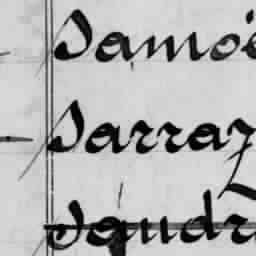 Samoë
Sarraz
Saudr